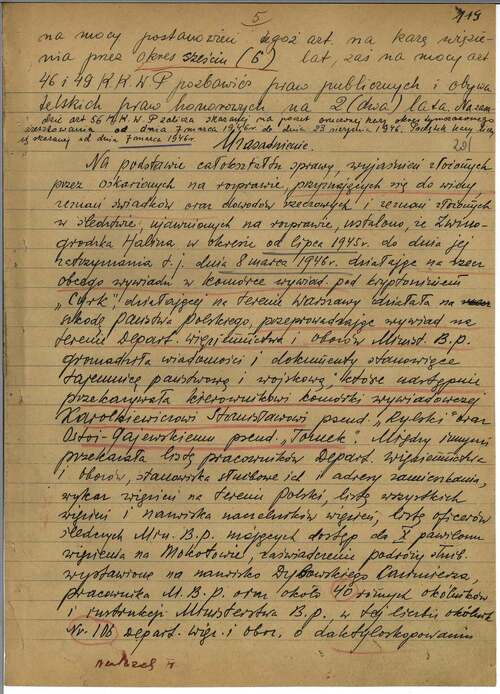 5
119
na mocy postanowień tegoż art. na karę więzie-
nia przez okres sześciu (6) lat, zaś na mocy art
46 i 49 K K W P pozbawić praw publicznych i obywa-
telskich praw honorowych na 2 (dwa) lata. Na zasa-
dzie art 56 K K W P zalicza skazanej na poczet orzeczonej kary okres tymczasowego
aresztowania od dnia 7 marca 1946r. do dnia 23 sierpnia 1946. Początek kary liczy
się skazanej od dnia 7 marca 1946r.
Uzasadnienie.
Na podstawie całokształtu sprawy, wyjaśnień złożonych
przez oskarżonych na rozprawie, przyznających się do winy,
zeznań świadków oraz dowodów rzeczowych i zeznań złożonych
w śledztwie, ujawnionych na rozprawie, ustalono, że
Halina w okresie od lipca 1945r. do dnia jej
zatrzymania t.j. dnia 8 marca 1946r. działając na rzecz
obcego wywiadu w komórce wywiad. pod kryptonimem
„Cyrk" działającej na terenie Warszawy działała na
szkodę państwa polskiego, przeprowadzając wywiad na
terenie Depart. więziennictwa i obozów Minist. B.P.
gromadziła wiadomości i dokumenty stanowiące
tajemnicę państwową i wojskową, które następnie
przekazywała kierownikowi komórki wywiadowczej
Karolkiewiczowi Stanisławowi pseud. „Rylski" oraz
Ostoi-Gajewskiemu pseud. „Tomek". Między innymi
przekazała listę pracowników Depart. więziennictwa
i obozów, stanowiska służbowe ich i adresy zamieszkania,
wykaz więzień na terenie Polski, listę wszystkich
więzień i nazwiska naczelników więzień, listę oficerów
śledczych Min. B.P. mających dostęp do X pawilonu
więzienia na Mokotowie, zaświadczenie podróży służb.
wystawione na nazwisko Dybowskiego Kazimierza,
pracownika M.B.P. oraz około 40 różnych okólników
i instrukcji Ministerstwa B.P., w tej liczbie okólnik
Nr. 106 Depart. więz. i oboz. o daktyloskopowaniu